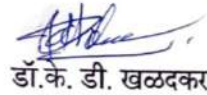 डॉ.के. डी. खळदकर